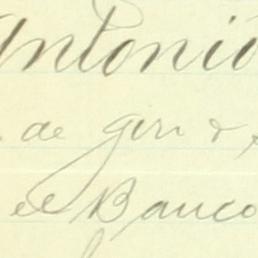 Antonio
de Gin &
el Banco